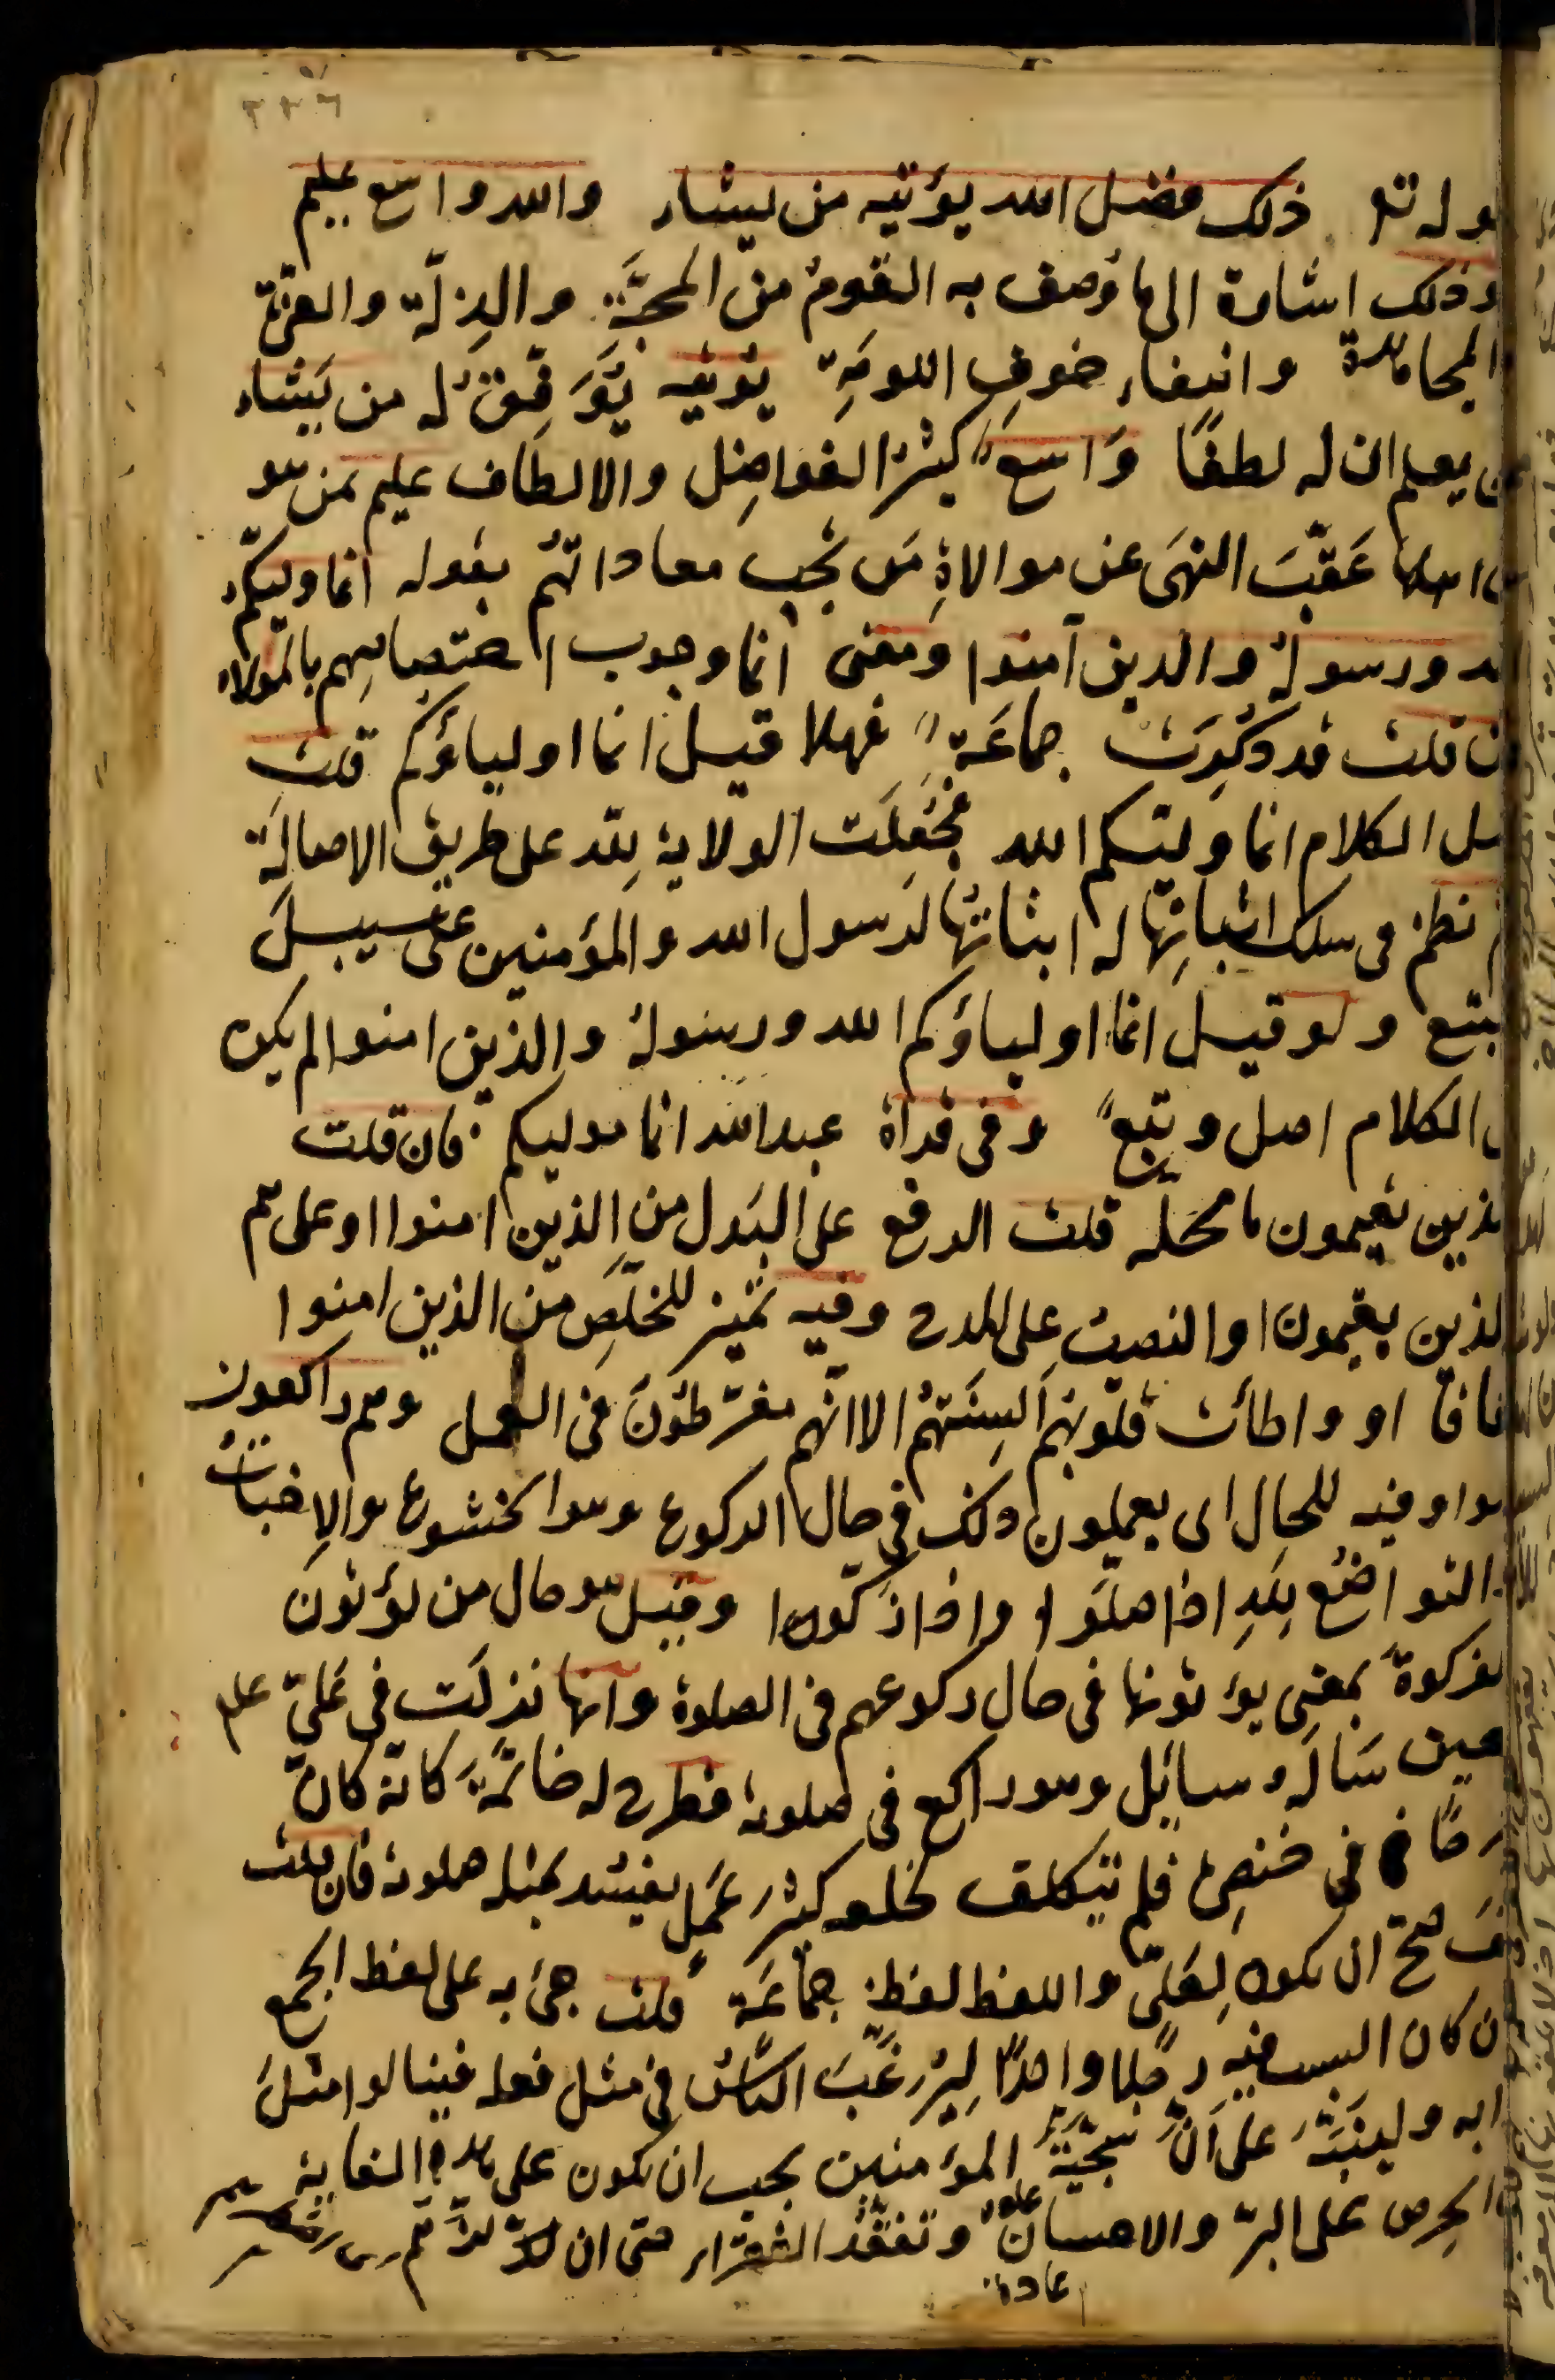 قوله تع ذلك فضل الله يؤتيه من يشاء والله واسع عليم
وذلك اشارة الى ما وُصف به القومُ من المحبَّةِ والذِلّة والعزّة
والمجاهدة وانتفاء خوفِ اللومَةِ يؤتيه يُوَفِّقُ له من يَشاء
ممن يعلم ان له لطفًا وَاسعٌ كثير الفواضِل والالطاف عليم بمن هو
من اهلها عَقَّبَ النهىَ عن موالاةِ مَن تجب معاداتهُم بقوله انما وليكم
الله ورسوله والذين آمنوا ومعنى انما وجوب اختصاصِهم بالموالاة
فان قلت قد ذُكِرَت جماعَةٌ فهلا قيل انما اولياؤكم قلت
اصل الكلام انما وليّكم الله فجُعِلَت الولاية لِلّه على طريق الاصالَة
ثم نظمَ فى سلك اثباتِها له اثباتُها لرسول الله والمؤمنين على سبيل
التبع ولو قيل انما اولياؤكم الله ورسوله والذين امنوا لم يكن
فى الكلام اصل وتبعٌ وفى قراة عبد الله انما موليكم فان قلت
الذين يقيمون ما محله قلت الرفع على البَدل من الذين امنوا او على هم
الذين يقيمون او النصب على المدح وفيه تمييز للخلَّصِ من الذين امنوا
نفاقا او واطأت قلوبهُم السِنَتهُم الا انّهم مفرّطُونَ فى العمل وهم راكعون
الواو فيه للحال اى يعملون ذلك فى حال الركوع وهوا لخشوع والاِخباتُ
والتواضُع لِلّهِ اذا صلَّوا واذا زكّوا وقيل هو حال من يؤتونَ
الزكوةَ بمعنى يؤتونها فى حال ركوعهم فى الصلوة وانها نزلَت فى عَلىّ علم
حين سَالَه سايِل وهو راكع فى صلوته فطرح له خاتمَهُ كانّه كان
مَرجًا فى خنصِرِه فلم يتكلّف لخلعه كثيرَ عَمَلٍ يفسُد بمثله صلوته فان قلت
كيفَ صحّ ان يكون لِعَلىٍّ واللفظ لفظ جماعَة قلت جئ به على لفظ الجمع
وان كان السبب فيه رجُلًا واحدًا لِيُرَغِّبَ الناسُ فى مثل فعله فينالوا مثلَ
ثوابه ولينَبِّهَ على اَنَّ سَجيَّةَ المؤمنين يجب ان تكون على هذه الغاية
من الحِرص على البرّ والاحسان وتفقُّد الفقراء حتى ان
عادة